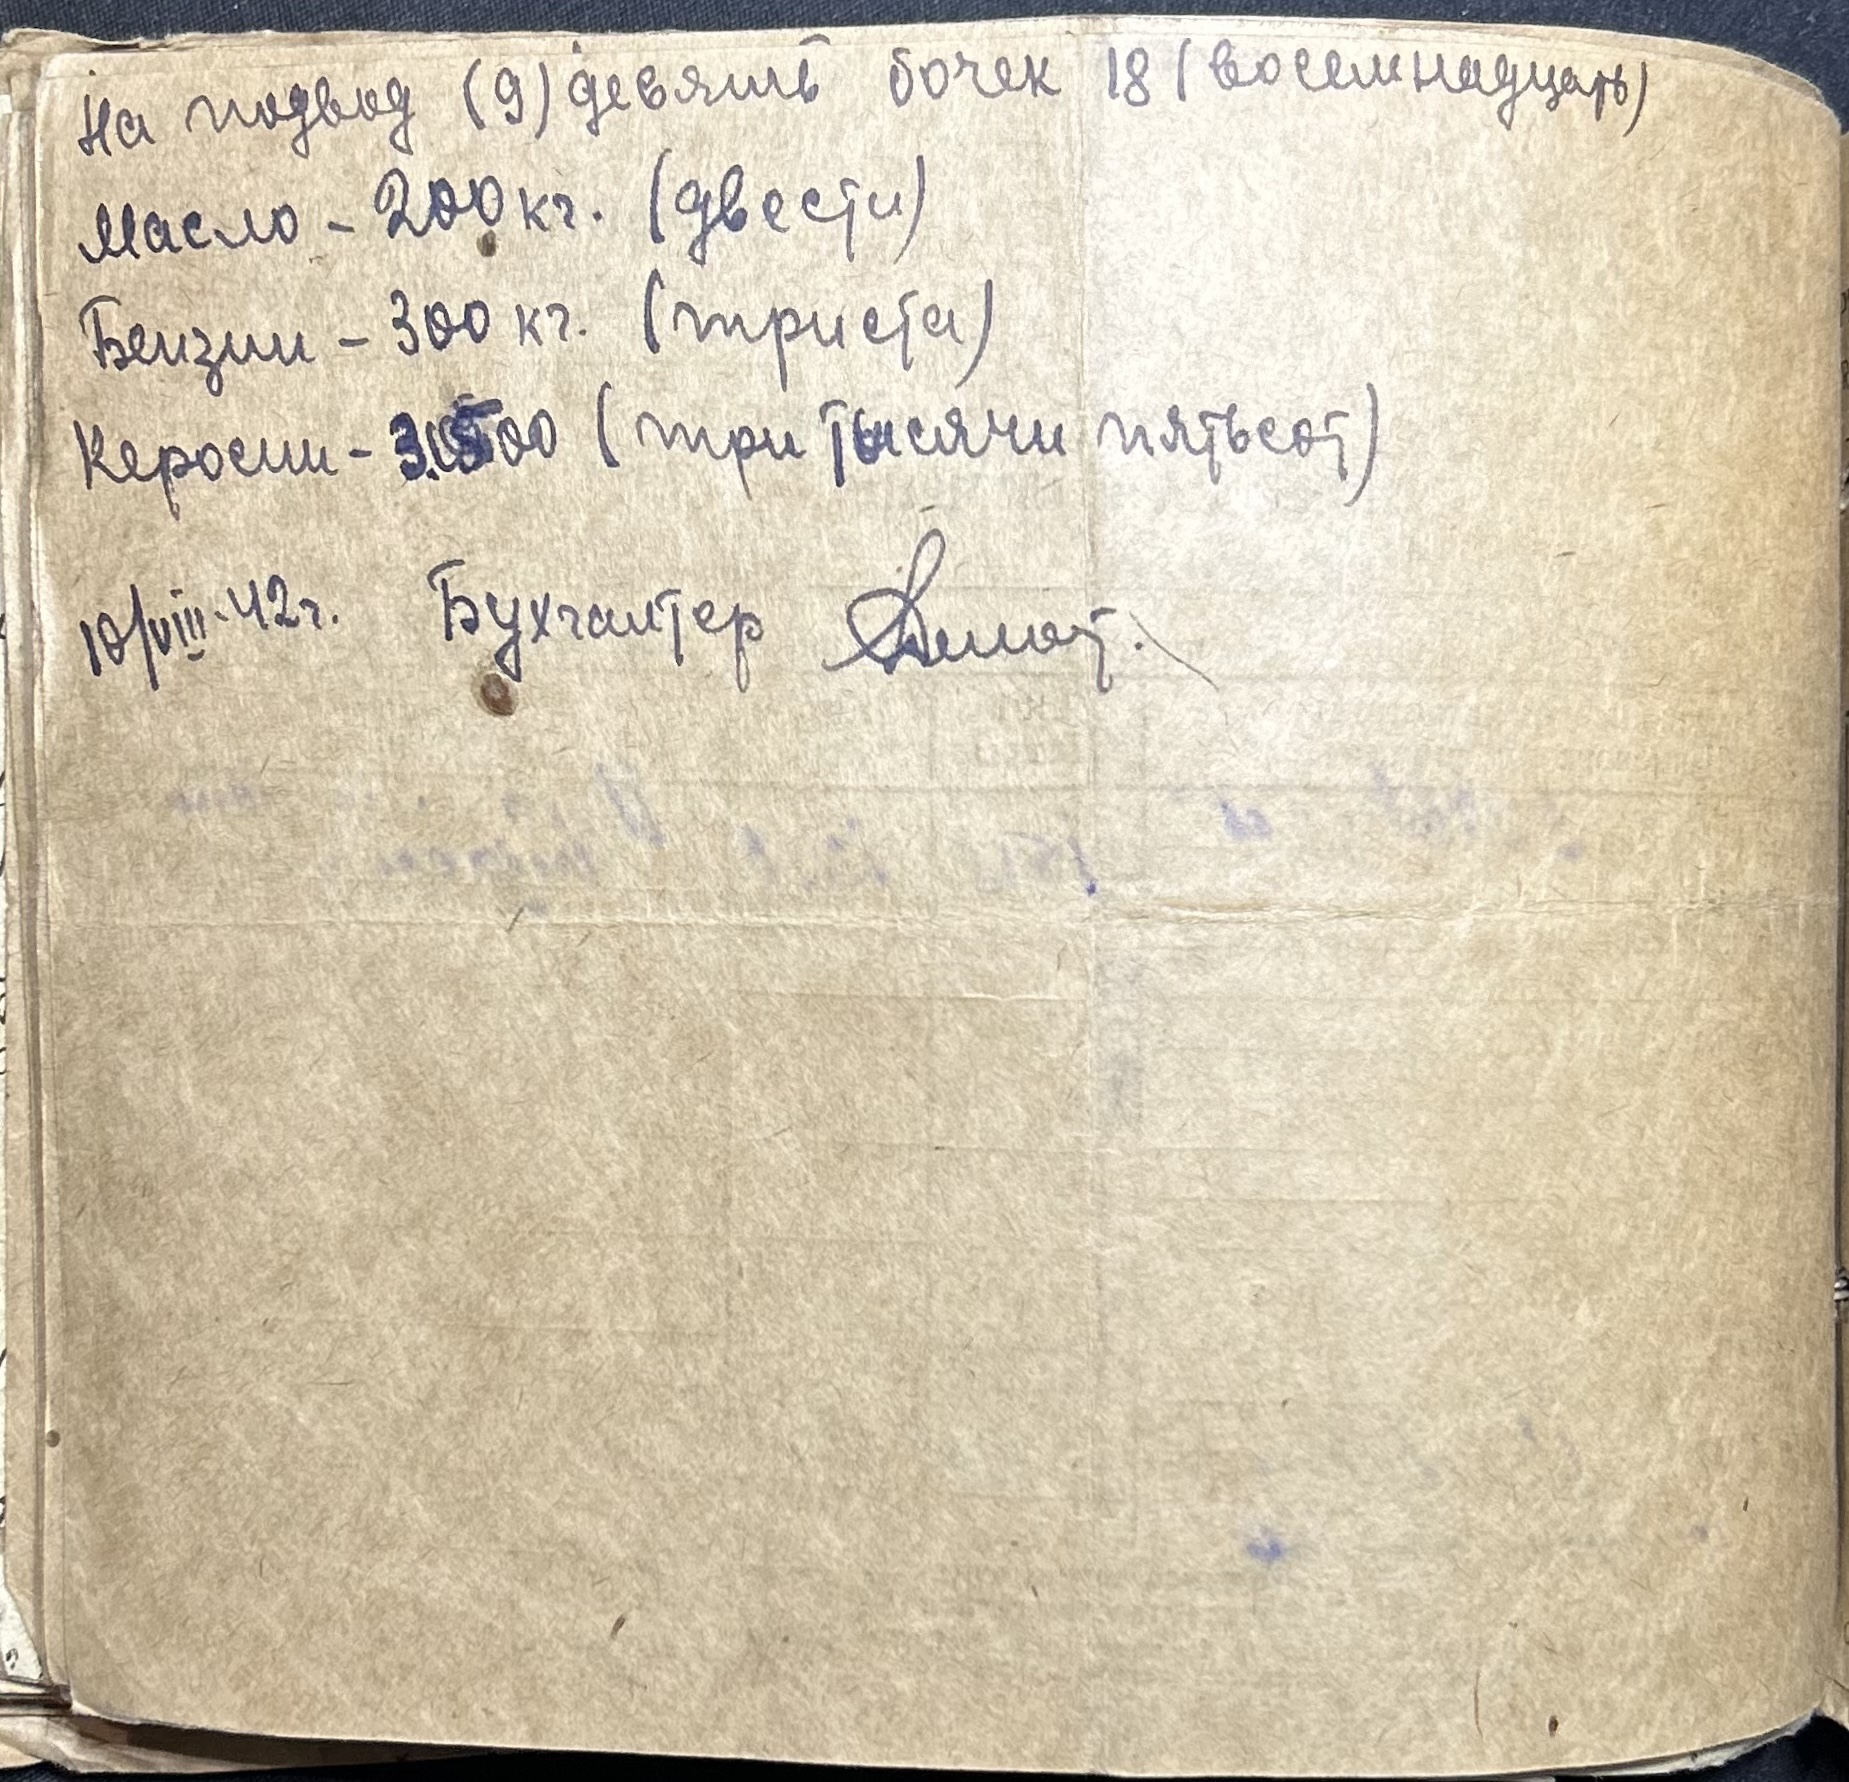 На подвод (9) девять бочек 18 (восемнадцать)
Масло - 200 кг. (двести)
Бензин - 300 кг. (триста)
Керосин - 3.500 (три тысячи пятьсот)
10/VIII-42г. Бухгалтер